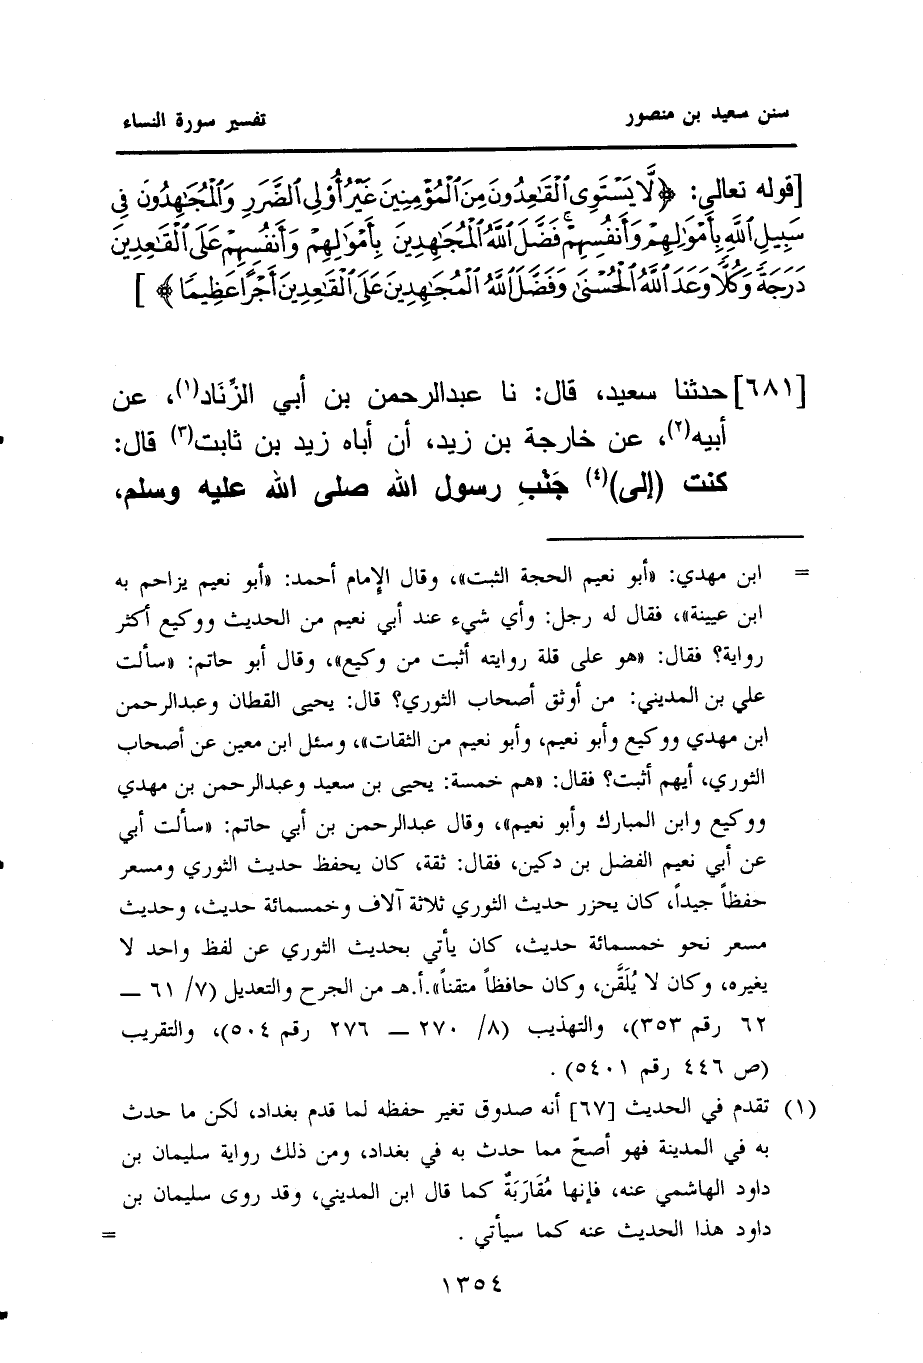 سنن سعيد بن منصور
تفسير سورة النساء
[قوله تعالى: ﴿لَّا يَسْتَوِى ٱلْقَٰعِدُونَ مِنَ ٱلْمُؤْمِنِينَ غَيْرُ أُوْلِى ٱلضَّرَرِ وَٱلْمُجَٰهِدُونَ فِى
سَبِيلِ ٱللَّهِ بِأَمْوَٰلِهِمْ وَأَنفُسِهِمْ ۚ فَضَّلَ ٱللَّهُ ٱلْمُجَٰهِدِينَ بِأَمْوَٰلِهِمْ وَأَنفُسِهِمْ عَلَى ٱلْقَٰعِدِينَ
دَرَجَةً ۚ وَكُلًّا وَعَدَ ٱللَّهُ ٱلْحُسْنَىٰ ۚ وَفَضَّلَ ٱللَّهُ ٱلْمُجَٰهِدِينَ عَلَى ٱلْقَٰعِدِينَ أَجْرًا عَظِيمًا﴾]
[٦٨١] حدثنا سعيد، قال: نا عبدالرحمن بن أبي الزِّنَاد(١)، عن
أبيه(٢)، عن خارجة بن زيد، أن أباه زيد بن ثابت(٣) قال:
كنت (إلى)(٤) جَنْبِ رسول الله صلى الله عليه وسلم،
= ابن مهدي: «أبو نعيم الحجة الثبت»، وقال الإمام أحمد: «أبو نعيم يزاحم به
ابن عيينة»، فقال له رجل: وأي شيء عند أبي نعيم من الحديث ووكيع أكثر
رواية؟ فقال: «هو على قلة روايته أثبت من وكيع»، وقال أبو حاتم: «سألت
علي بن المديني: من أوثق أصحاب الثوري؟ قال: يحيى القطان وعبدالرحمن
ابن مهدي ووكيع وأبو نعيم، وأبو نعيم من الثقات»، وسئل ابن معين عن أصحاب
الثوري، أيهم أثبت؟ فقال: «هم خمسة: يحيى بن سعيد وعبدالرحمن بن مهدي
ووكيع وابن المبارك وأبو نعيم»، وقال عبدالرحمن بن أبي حاتم: «سألت أبي
عن أبي نعيم الفضل بن دكين، فقال: ثقة، كان يحفظ حديث الثوري ومسعر
حفظاً جيداً، كان يحزر حديث الثوري ثلاثة آلاف وخمسمائة حديث، وحديث
مسعر نحو خمسمائة حديث، كان يأتي بحديث الثوري عن لفظ واحد لا
يغيره، وكان لا يُلَقَّن، وكان حافظاً متقناً».أ.هـ من الجرح والتعديل (٧/ ٦١ ــ
٦٢ رقم ٣٥٣)، والتهذيب (٨/ ٢٧٠ ــ ٢٧٦ رقم ٥٠٤)، والتقريب
(ص ٤٤٦ رقم ٥٤٠١) .
(١) تقدم في الحديث [٦٧] أنه صدوق تغير حفظه لما قدم بغداد، لكن ما حدث
به في المدينة فهو أصحّ مما حدث به في بغداد، ومن ذلك رواية سليمان بن
داود الهاشمي عنه، فإنها مُقَارَبَةٌ كما قال ابن المديني، وقد روى سليمان بن
داود هذا الحديث عنه كما سيأتي . =
١٣٥٤